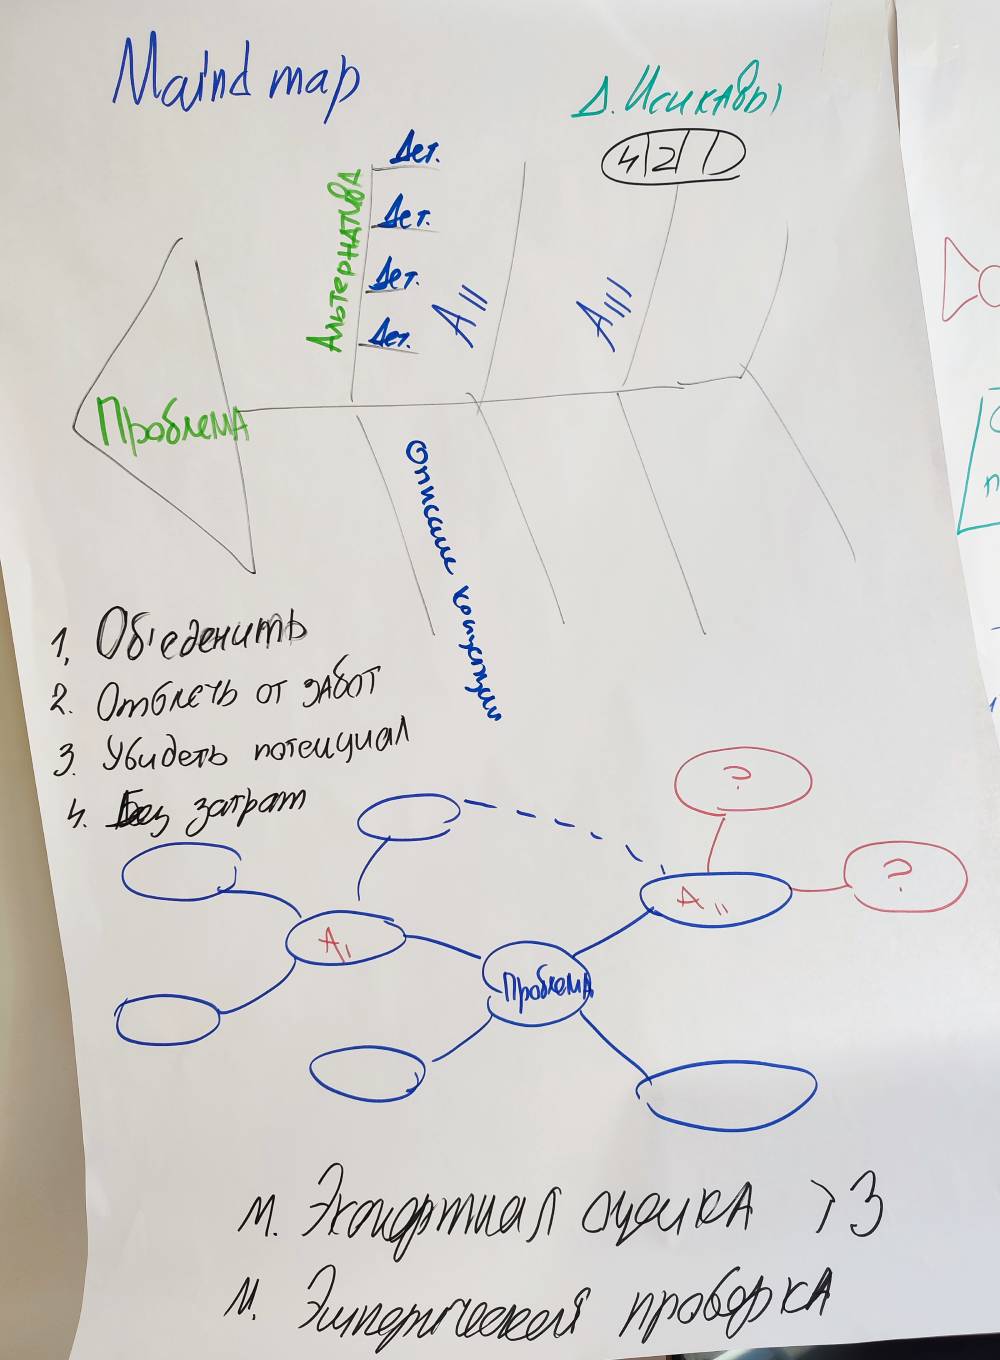 Maind map
Д. Исикавы
4 2 1
Дет.
Дет.
Дет.
Дет.
Альтернатива
А||
А|||
Проблема
Описание
1. Об'еденить
2. Отвлечь от забот
3. Увидеть потенциал
4. Без затрат
?
?
А||
А|
Проблема
М. Экспертная оценка >3
М. Эмперическая проверка